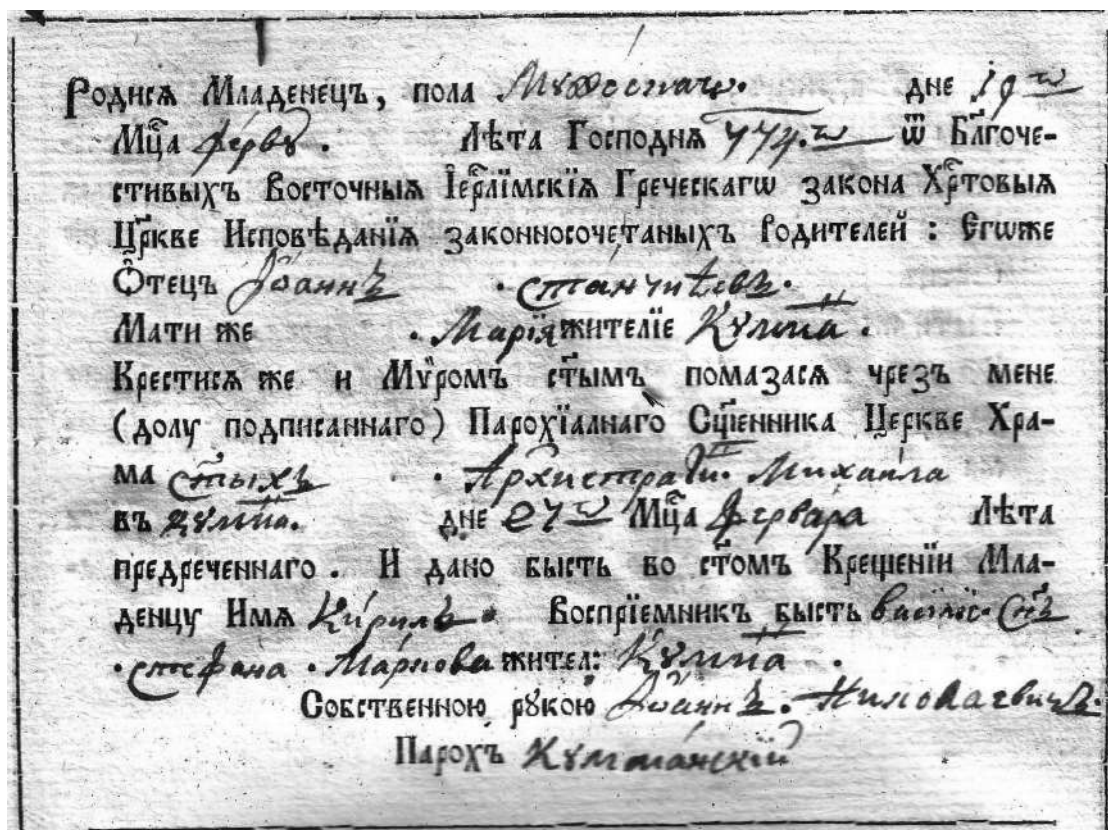 Родися Младенецъ, пола Мужескагѡ. дне 19 ѡ
Мц҃а Ферву. Лѣта Господня 774. ѡ ѿ Бл҃гоче-
стивыхъ Восточныя Іер҃лімскія Греческагѡ закона Хр҃товыя
Цр҃кве Исповѣданїя законносочетаныхъ Родителей : Егѡже
Ѻтецъ Іѡаннъ . станчꙋлевъ.
Мати же . Марїя жителїе Кꙋлпи .
Крестися же и Мѵромъ ст҃ымъ помазася чрезъ мене
(долу подписаннаго) Парохїалнаго Сщ҃енника Церкве Хра-
ма ст҃ыхъ . Архистрати. Михаила
въ дне 27 ѡ Мц҃а Фервара Лѣта
предреченнаго . И дано бысть во ст҃омъ Крещенїи Мла-
денцу Имя Кирилъ . Воспрїемникъ бысть васілїе
. стефана . Маркова жител:
Собственною рꙋкою Іѡаннъ.
Парохъ